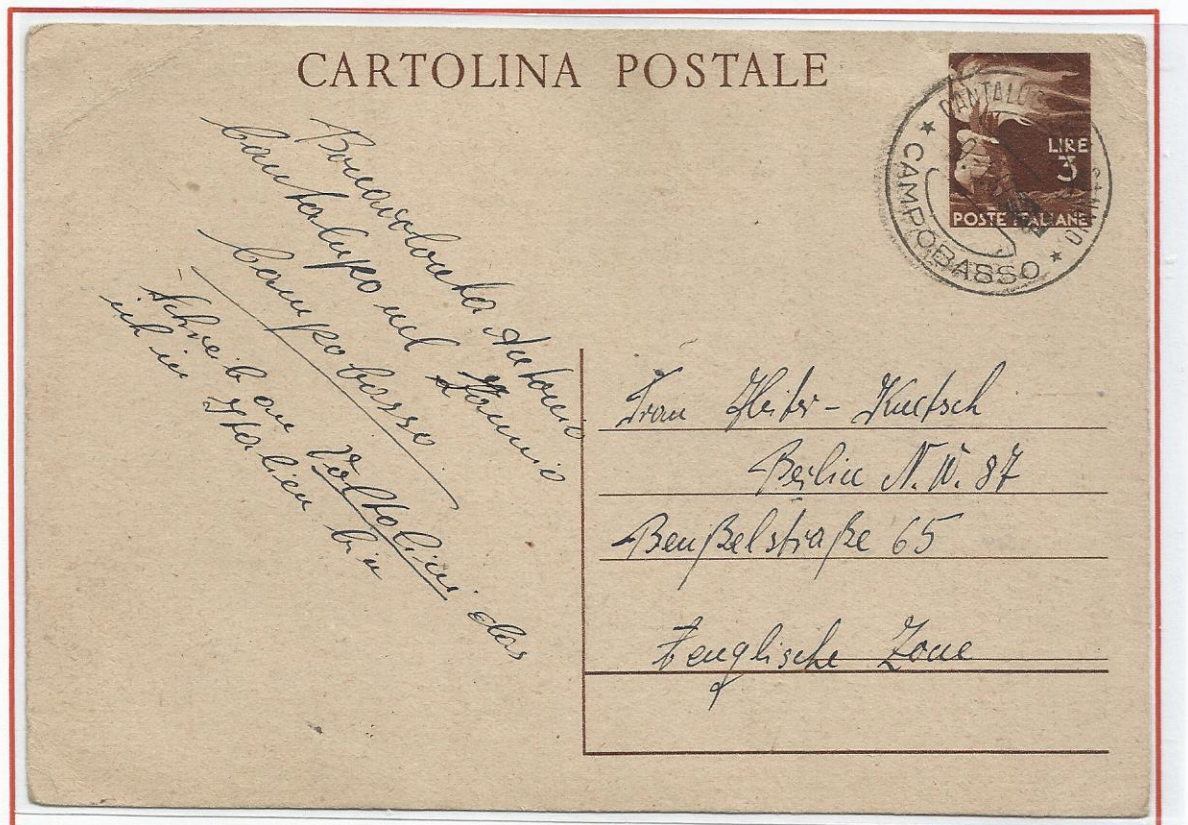 CARTOLINA POSTALE
LIRE
3
POSTE ITALIANE
CAMPOBASSO
Antonio
Cantalupo nel Sannio
Campobasso
Schreib an Voltolini das
ich in Italien bin
Frau Heiter-Kutsch
Berlin N.W. 87
Beußelstraße 65
englische Zone